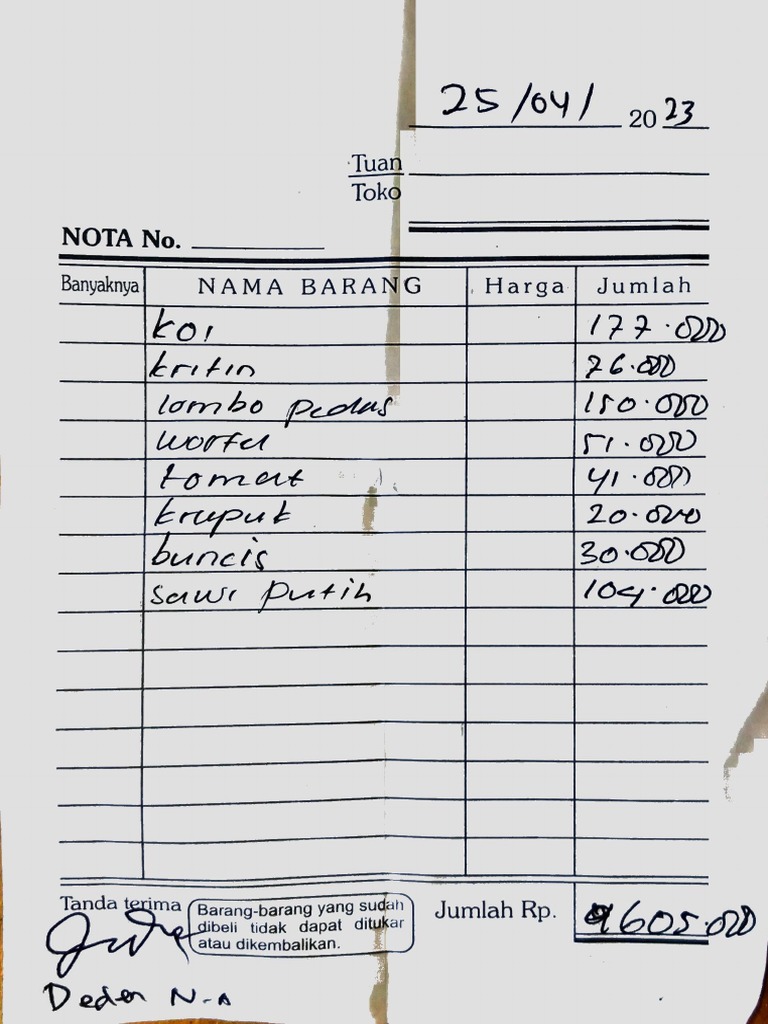 25/04/ 2023
Tuan
Toko
NOTA No.
Banyaknya NAMA BARANG Harga Jumlah
koi 177.000
kritin 76.000
lombo pedas 150.000
wortel 51.000
tomat 41.000
kruput 20.000
buncis 30.000
sawi putih 104.000
Tanda terima
Barang-barang yang sudah
dibeli tidak dapat ditukar
atau dikembalikan.
Jumlah Rp. 605.000
Deden N-A